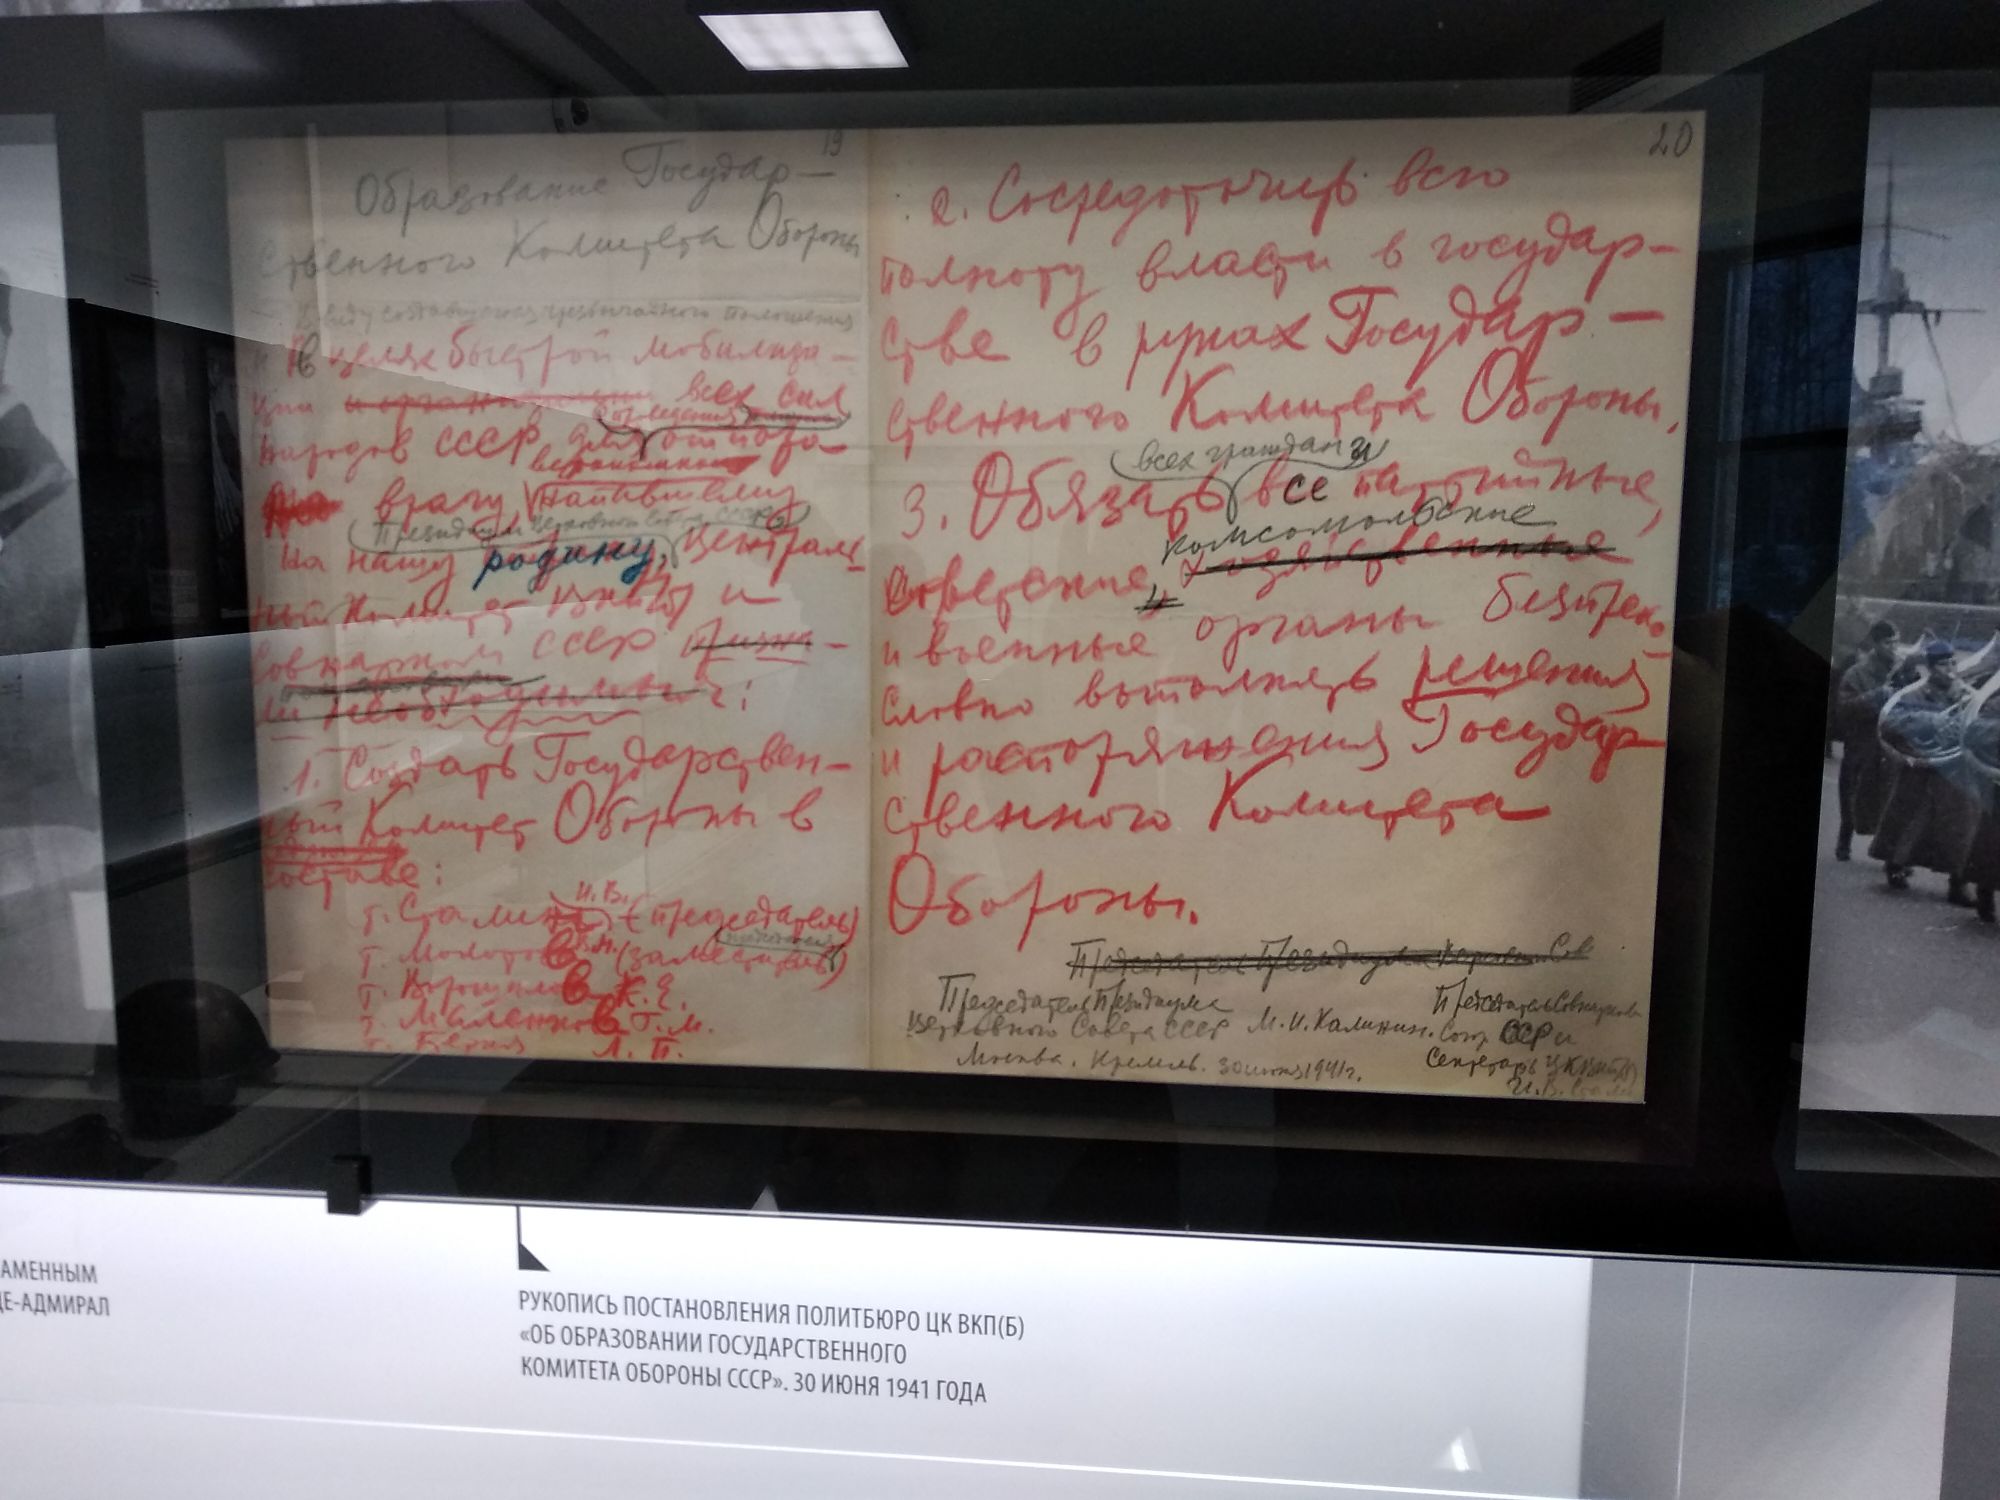 19
Образование Государ-
ственного Комитета Обороны
Ввиду создавшегося чрезвычайного положения
и в целях быстрой мобилиза-
ции и организации всех сил
народов СССР для отпора
вероломно
врагу, напавшему
Президиум Верховного Совета СССР,
на нашу родину, Централь-
ный Комитет ВКП(б) и
Совнарком СССР призна-
ли необходимым:
1. Создать Государствен-
ный Комитет Обороны в
составе:
И.В.
т. Сталин (председатель)
т. Молотов В.М. (заместитель)
т. Ворошилов К.Е.
т. Маленков Г.М.
т. Берия Л.П.
20
2. Сосредоточить всю
полноту власти в государ-
стве в руках Государ-
ственного Комитета Обороны.
всех граждан и
3. Обязать все партийные,
комсомольские
советские, хозяйственные
и военные органы беспреко-
словно выполнять решения
и распоряжения Государ-
ственного Комитета
Обороны.
Председатель Президиума Верховн Сов
Председатель Президиума
Верховного Совета СССР М.И. Калинин.
Москва. Кремль. 30 июня 1941 г.
Председатель Совнаркома
Союз ССР и
Секретарь ЦК ВКП(б)
И.В. Сталин
АМЕННЫМ
ЦЕ-АДМИРАЛ
РУКОПИСЬ ПОСТАНОВЛЕНИЯ ПОЛИТБЮРО ЦК ВКП(Б)
«ОБ ОБРАЗОВАНИИ ГОСУДАРСТВЕННОГО
КОМИТЕТА ОБОРОНЫ СССР». 30 ИЮНЯ 1941 ГОДА